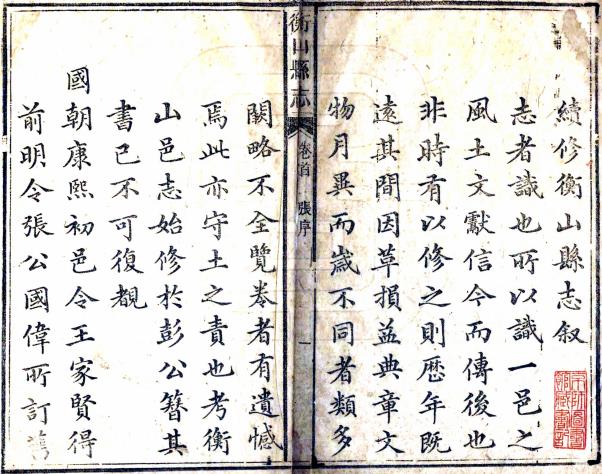 續修衡山縣志叙
志者識也所以識一邑之
風土文獻信今而傳後也
非時有以修之則歷年既
遠其間因革損益典章文
物月異而歲不同者類多
衡山縣志
卷首
張序
一
闕略不全覽者有遺憾
焉此亦守土之責也考衡
山邑志始修於彭公簪其
書已不可復覩
國朝康熙初邑令王家賢得
前明令張公國偉所訂舊